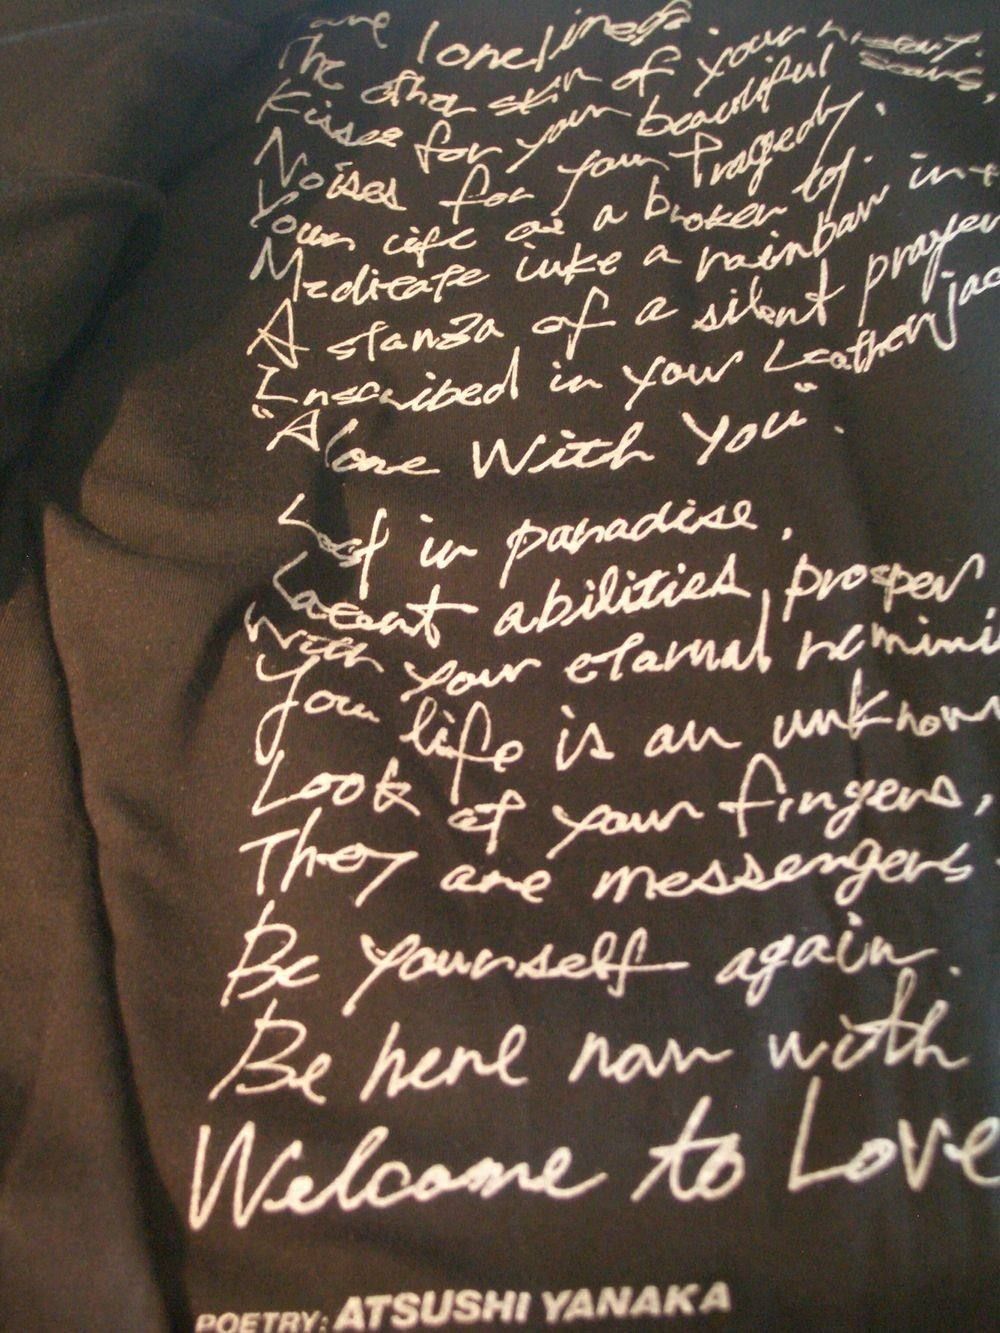 are loneliness.
The other skin of your misery.
Kisses for your beautiful scars,
Noises for your tragedy.
Your life as a broken toy.
Medicate like a rainbow in
A stanza of a silent prayer
Inscribed in your Leather jac
"Alone With You".
Lost in paradise,
Latent abilities prosper
With your eternal
Your life is an unknown
Look at your fingers,
They are messengers
Be yourself again
Be here now with
Welcome to Love
POETRY: ATSUSHI YANAKA